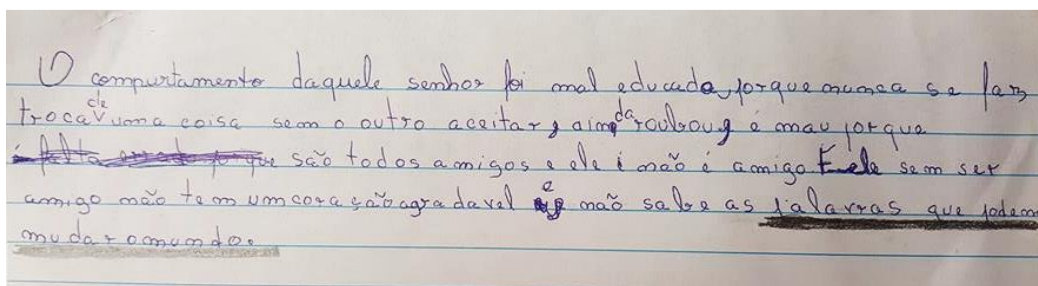 O compurtamento daquele senhor foi mal educado, porque nunca se faz
troca de uma coisa sem o outro aceitar, ainda roubou g é mau porque
são todos amigos e ele i não é amigo E ele sem ser
amigo não tem um coração agradavel e não sabe as palavras que podem
mudar o mundo.